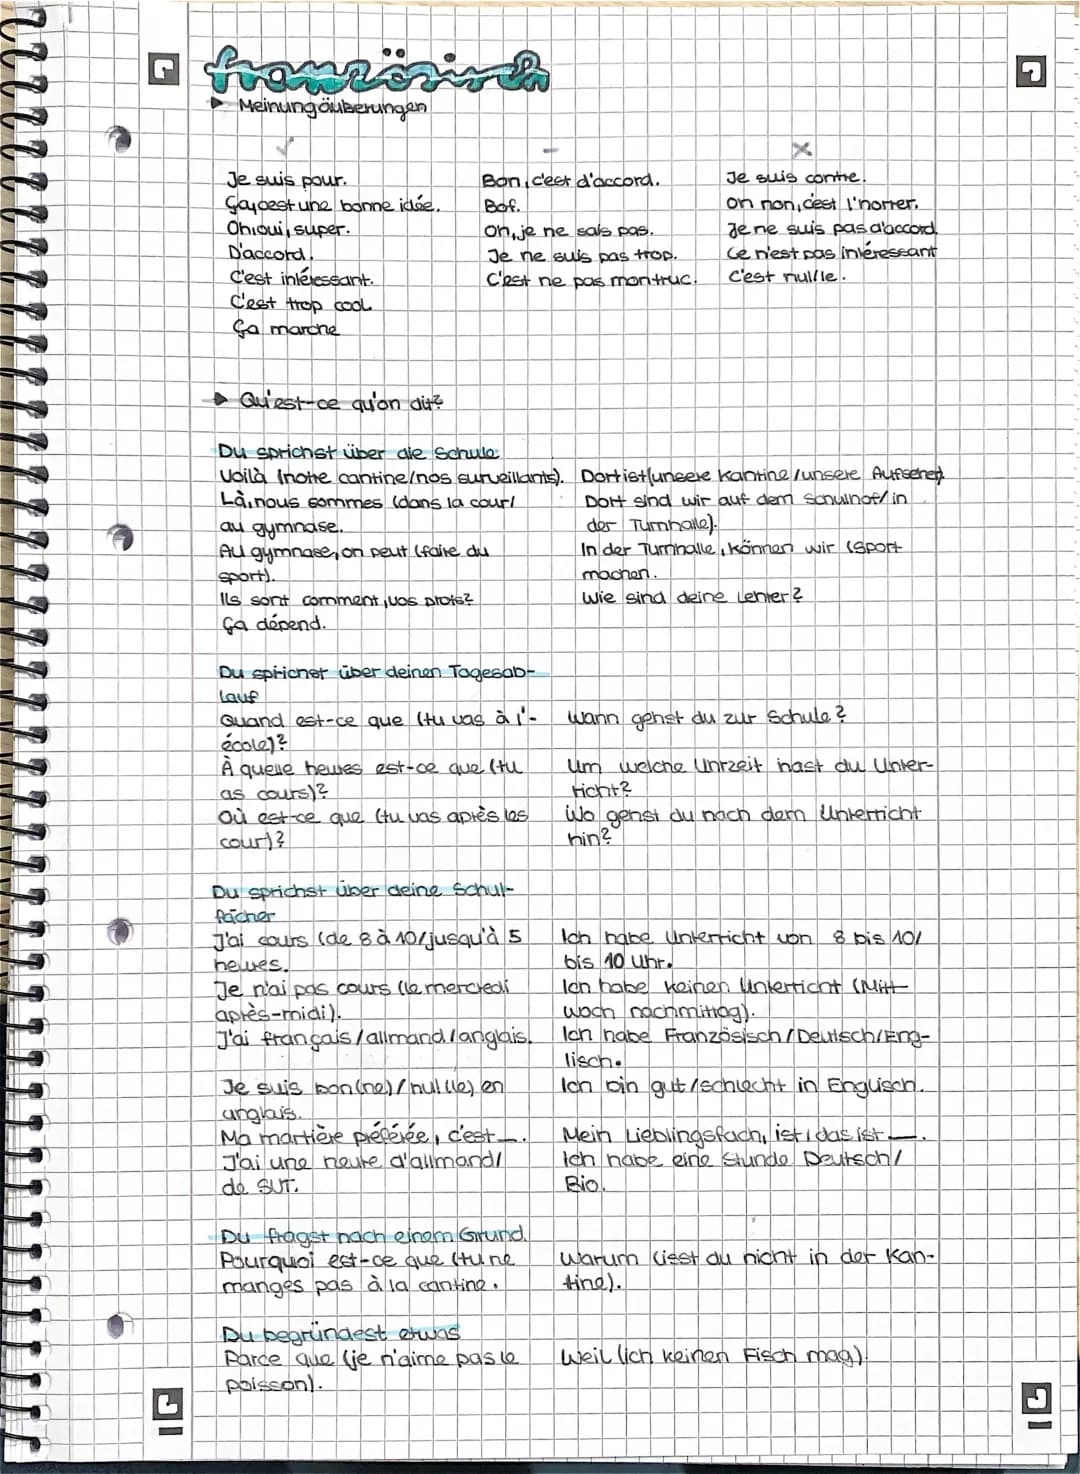 französisch
▸ Meinungäußerungen
✓ – ×
Je suis pour. Bon, c'est d'accord. Je suis contre.
Ça, c'est une bonne idée. Bof. Oh non, c'est l'horrer.
Oh, oui, super. Oh, je ne sais pas. Je ne suis pas d'accord
D'accord. Je ne suis pas trop. Ce n'est pas intéressant
C'est intéressant. C'est ne pas mon truc. C'est nul/le.
C'est trop cool
Ça marche
▸ Qu'est-ce qu'on dit?
Du sprichst über die Schule:
Voilà (notre cantine/nos surveillants). Dort ist (unsere Kantine/unsere Aufseher).
Là, nous sommes (dans la cour/ Dort sind wir auf dem Schulhof/in
au gymnase. der Turnhalle).
Au gymnase, on peut (faire du In der Turnhalle, können wir (Sport
sport). machen.
Ils sont comment, vos profs? Wie sind deine Lehrer?
Ça dépend.
Du sprichst über deinen Tagesab-
lauf
Quand est-ce que (tu vas à l'- Wann gehst du zur Schule?
école)?
À quelle heures est-ce que (tu Um welche Uhrzeit hast du Unter-
as cours)? richt?
Où est-ce que (tu vas après les Wo gehst du nach dem Unterricht
cour)? hin?
Du sprichst über deine Schul-
fächer
J'ai cours (de 8 à 10/jusqu'à 5 Ich habe Unterricht von 8 bis 10/
heures. bis 10 Uhr.
Je n'ai pas cours (le mercredi Ich habe keinen Unterricht (Mitt-
après-midi). woch nachmittag).
J'ai français/allmand/anglais. Ich habe Französisch/Deutsch/Eng-
lisch.
Je suis bon(ne)/nul(le) en Ich bin gut/schlecht in Englisch.
anglais.
Ma martière préférée, c'est __. Mein Lieblingsfach, ist/das ist __.
J'ai une heure d'allmand/ Ich habe eine Stunde Deutsch/
de SVT. Bio.
Du fragst nach einem Grund.
Pourquoi est-ce que (tu ne Warum (isst du nicht in der Kan-
manges pas à la cantine. tine).
Du begründest etwas
Parce que (je n'aime pas le Weil (ich keinen Fisch mag).
poisson).